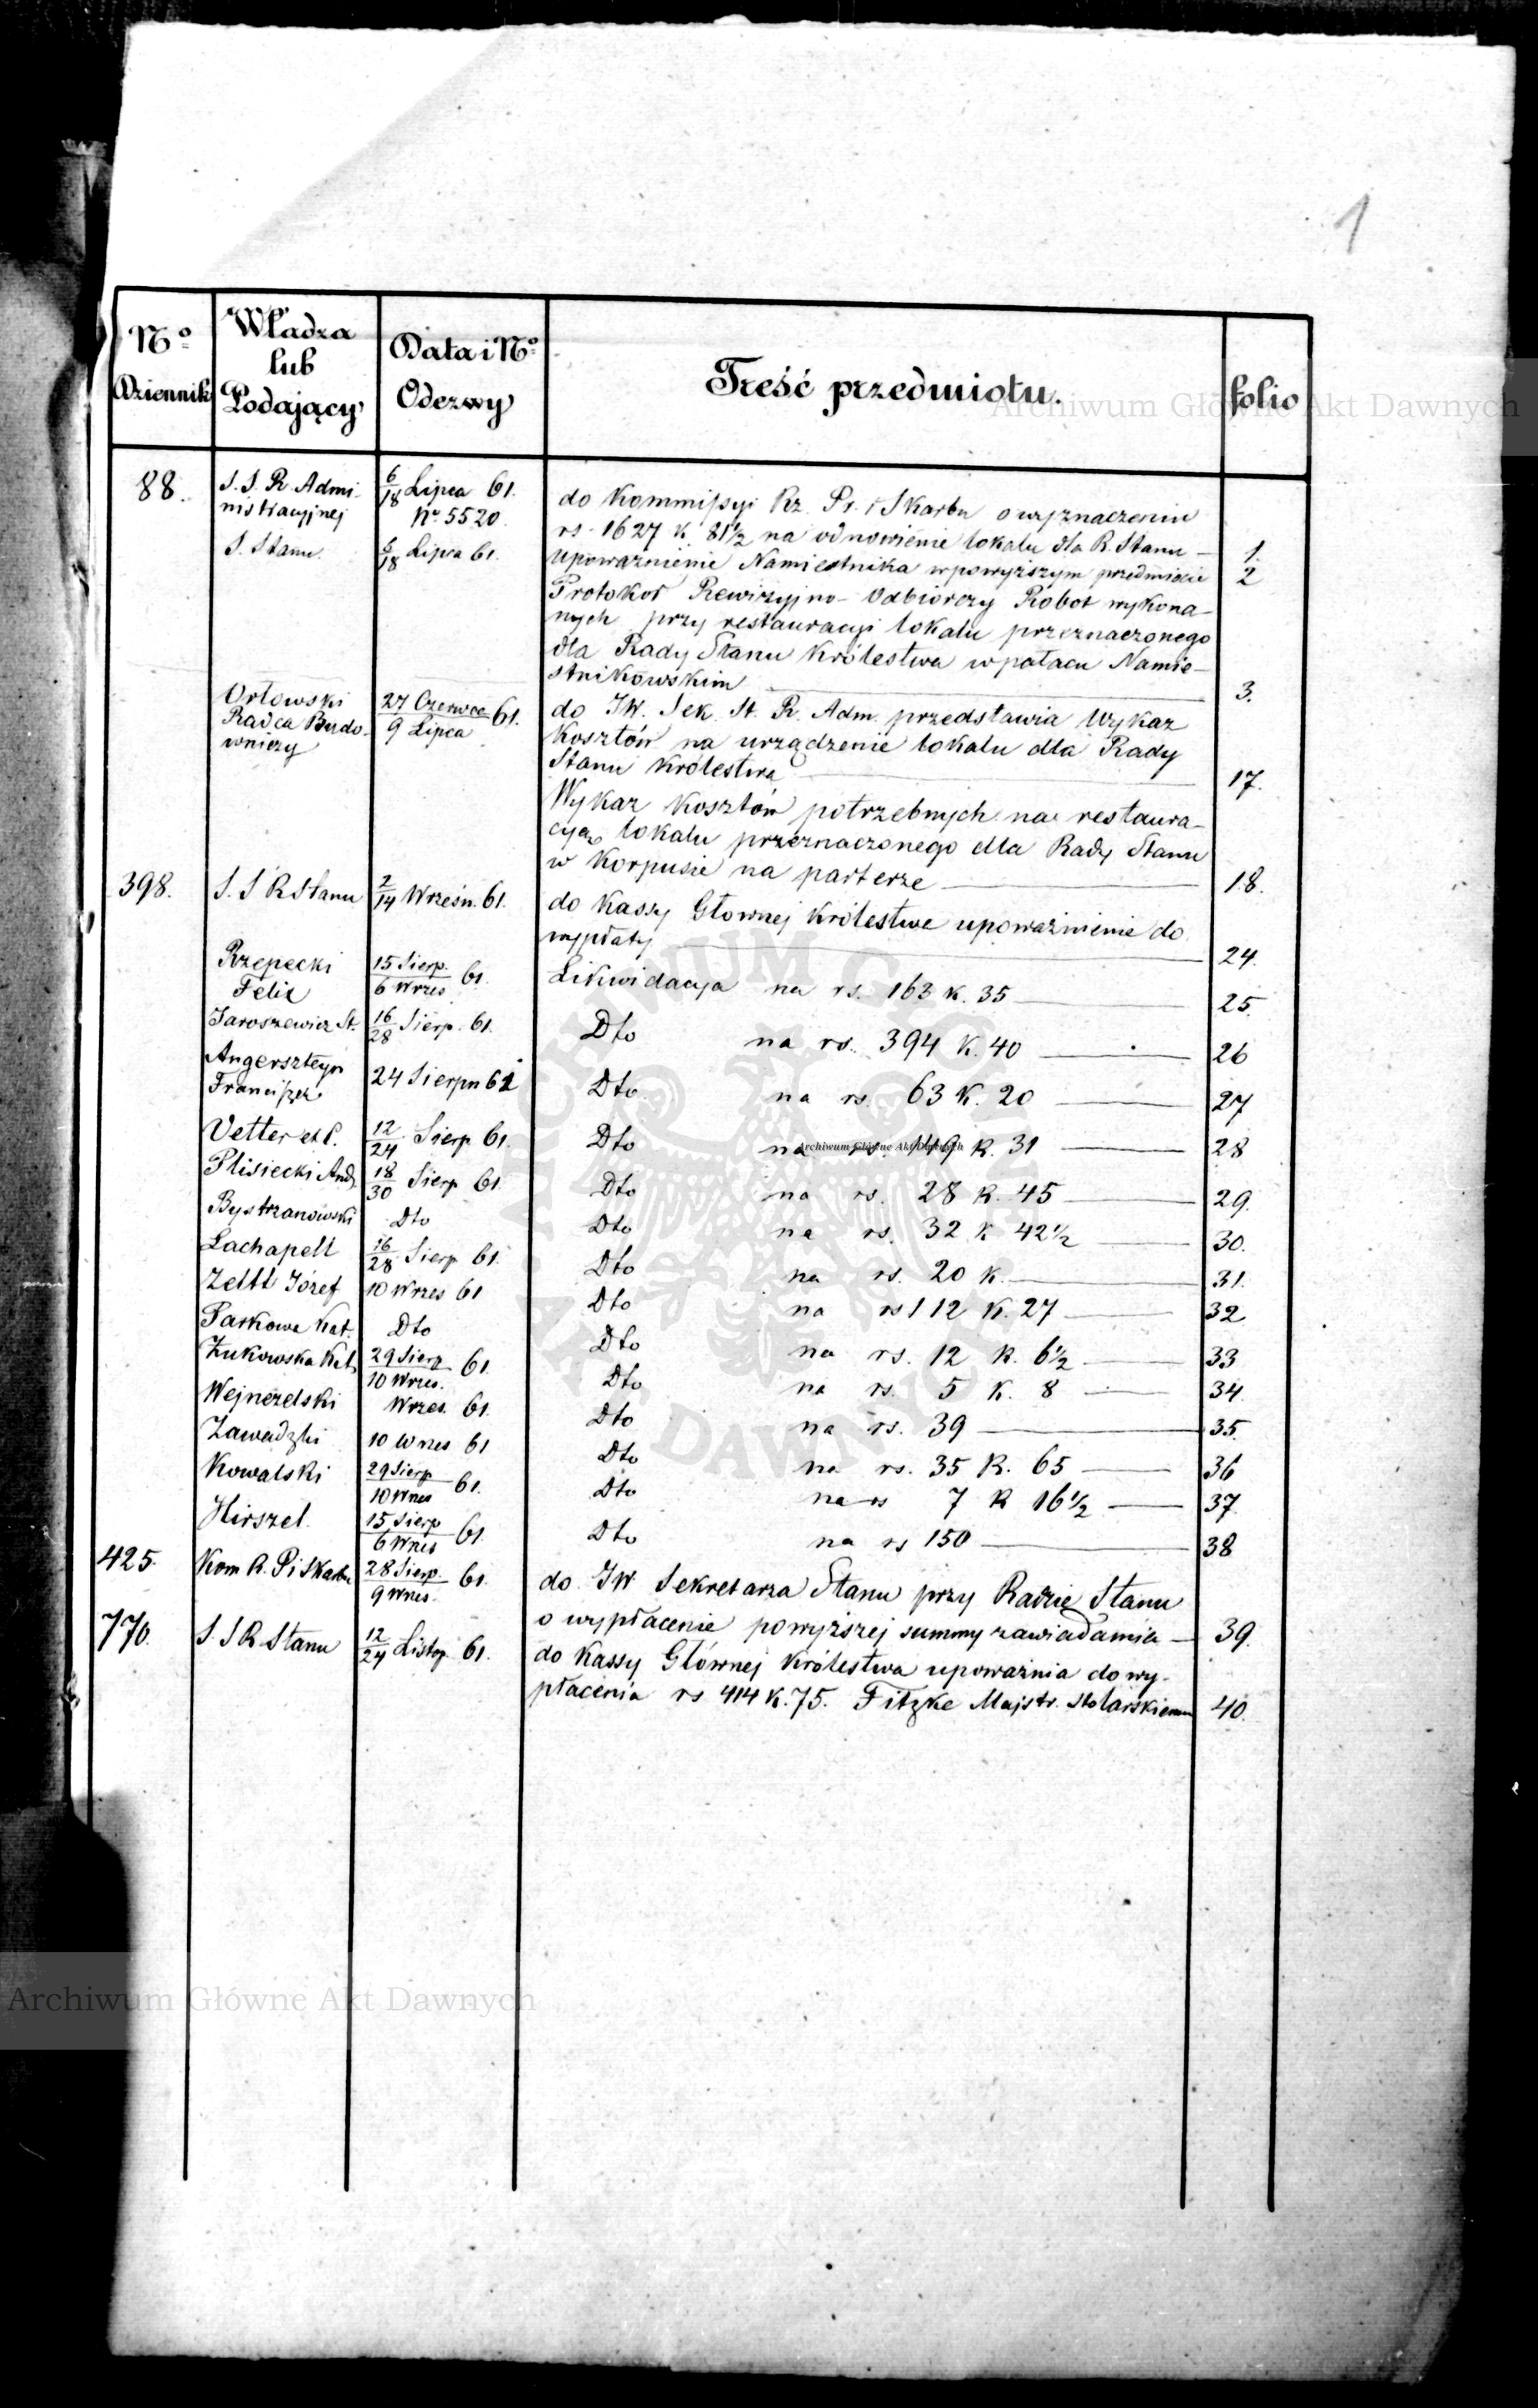 1
Nº Dziennik
Władza lub Podający
Data i Nº Odezwy
Treść przedmiotu.
folio
Archiwum Główne Akt Dawnych
88. S. S. R. Admi- 6/18 Lipca 61. do Kommissyi Rz. Pr. i Skarbu o wyznaczeniu
nistracyjnej Nº 5520. rs. 1627 k. 81½ na odnowienie lokalu dla R. Stanu — 1.
S. Stanu. 6/18 Lipca 61. upoważnienie Namiestnika w powyższym przedmiocie 2
Protokoł Rewizyjno-Odbiorczy Robot wykona-
nych przy restauracyi lokalu przeznaczonego
dla Rady Stanu Królestwa w pałacu Namie-
stnikowskim 3.
Orłowski 27 Czerwca/9 Lipca 61. do JW. Sek. St. R. Adm. przedstawia Wykaz
Radca Budo- Kosztów na urządzenie lokalu dla Rady
wniczy Stanu Królestwa 17.
Wykaz Kosztów potrzebnych na restaura-
cyą lokalu przeznaczonego dla Rady Stanu
w Korpusie na parterze 18.
398. S. S R Stanu 2/14 Wrześn. 61. do Kassy Głownej Królestwa upoważnienie do
wypłaty 24.
Rzepecki Felix 15 Sierp./6 Wrzes 61. Likwidacya na rs. 163 k. 35 — 25.
Jaroszewicz St. 16/28 Sierp. 61. Dto na rs. 394 K. 40 — 26
Angerszteyn Franciszek 24 Sierpn 61 Dto na rs. 63 K. 20 — 27
Vetter et C. 12/24 Sierp 61. Dto na rs. 149 K. 31 — 28
Archiwum Główne Akt Dawnych
Plisiecki And. 18/30 Sierp 61. Dto na rs. 28 K. 45 — 29.
Bystrzanowski Dto Dto na rs. 32 K 42½ — 30.
Lachapell 16/28 Sierp 61. Dto na rs. 20 K. — 31.
Zettl Józef 10 Wrzes 61 Dto na rs 112 K. 27 — 32
Kat. Dto Dto na rs. 12 K. 6½ — 33
Żukowska Kat. 29 Sierp/10 Wrzes. 61 Dto na rs. 5 K. 8 — 34
Wrzes. 61. Dto na rs. 39 — 35.
Zawadzki 10 Wrzes 61 Dto na rs. 35 K. 65 — 36
Kowalski 29 Sierp/10 Wrzes 61. Dto na rs 7 K 16½ — 37.
Hirszel. 15 Sierp/6 Wrzes 61. Dto na rs 150 — 38
425. Kom R. P i Skarbu 28 Sierp./9 Wrzes. 61. do JW Sekretarza Stanu przy Radzie Stanu
o wypłacenie powyższej summy zawiadamia — 39.
770. S. S R Stanu 12/24 Listop 61. do Kassy Głównej Królestwa upoważnia do wy-
płacenia rs 414 K. 75. Fitzke Majstr. Stolarskiemu 40.
ARCHIWUM GŁÓWNE AKT DAWNYCH
Archiwum Główne Akt Dawnych